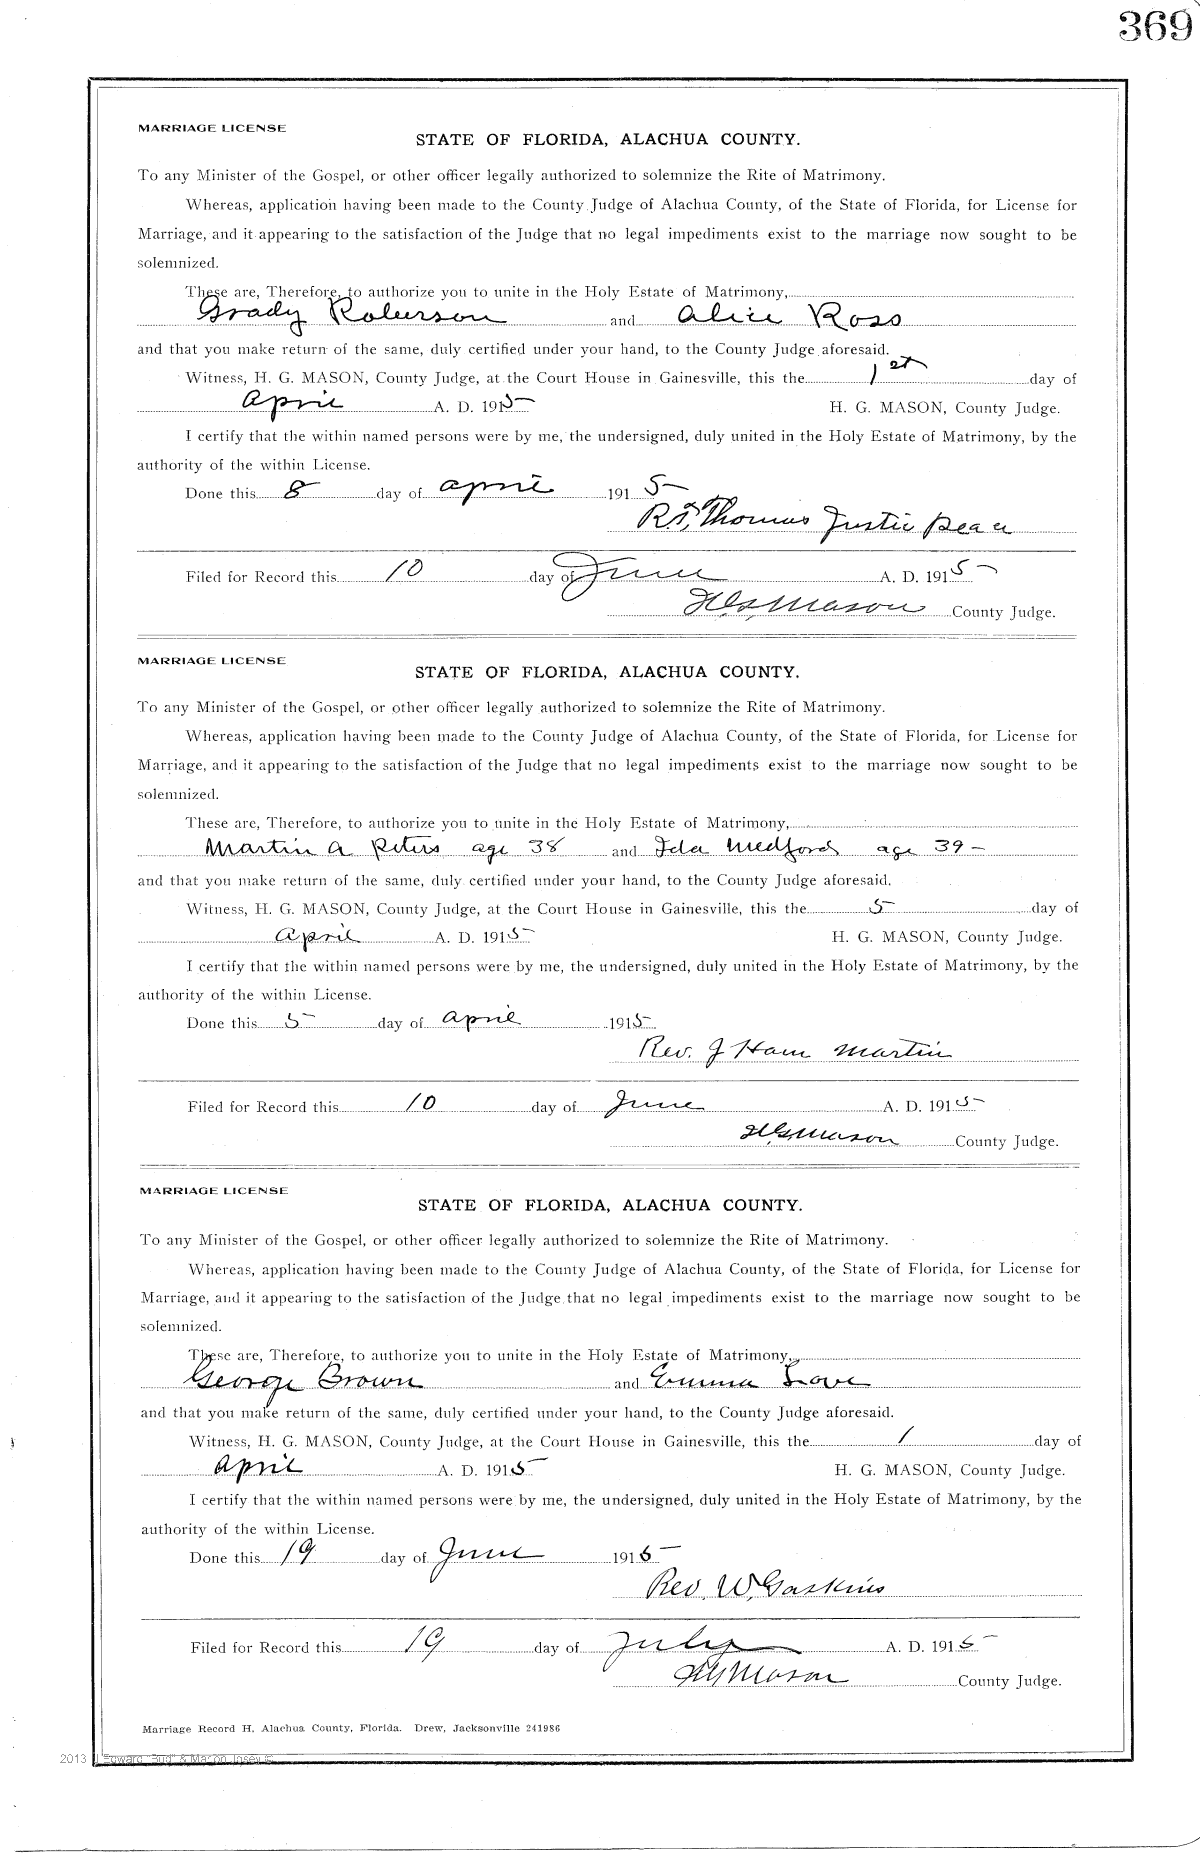 369
MARRIAGE LICENSE
STATE OF FLORIDA, ALACHUA COUNTY.
To any Minister of the Gospel, or other officer legally authorized to solemnize the Rite of Matrimony.
Whereas, application having been made to the County Judge of Alachua County, of the State of Florida, for License for
Marriage, and it appearing to the satisfaction of the Judge that no legal impediments exist to the marriage now sought to be
solemnized.
These are, Therefore, to authorize you to unite in the Holy Estate of Matrimony,
Grady Roberson and Alice Ross
and that you make return of the same, duly certified under your hand, to the County Judge aforesaid.
Witness, H. G. MASON, County Judge, at the Court House in Gainesville, this the 1st day of
April A. D. 1915 H. G. MASON, County Judge.
I certify that the within named persons were by me, the undersigned, duly united in the Holy Estate of Matrimony, by the
authority of the within License.
Done this 8 day of April 1915
Thomas Justic peace
Filed for Record this 10 day of June A. D. 1915
H. G. Mason County Judge.
MARRIAGE LICENSE
STATE OF FLORIDA, ALACHUA COUNTY.
To any Minister of the Gospel, or other officer legally authorized to solemnize the Rite of Matrimony.
Whereas, application having been made to the County Judge of Alachua County, of the State of Florida, for License for
Marriage, and it appearing to the satisfaction of the Judge that no legal impediments exist to the marriage now sought to be
solemnized.
These are, Therefore, to authorize you to unite in the Holy Estate of Matrimony,
Martin A Peters age 38 and Ida Medford age 39 -
and that you make return of the same, duly certified under your hand, to the County Judge aforesaid.
Witness, H. G. MASON, County Judge, at the Court House in Gainesville, this the 5 day of
April A. D. 1915 H. G. MASON, County Judge.
I certify that the within named persons were by me, the undersigned, duly united in the Holy Estate of Matrimony, by the
authority of the within License.
Done this 5 day of April 1915
Rev. J Ham Martin
Filed for Record this 10 day of June A. D. 1915
H. G. Mason County Judge.
MARRIAGE LICENSE
STATE OF FLORIDA, ALACHUA COUNTY.
To any Minister of the Gospel, or other officer legally authorized to solemnize the Rite of Matrimony.
Whereas, application having been made to the County Judge of Alachua County, of the State of Florida, for License for
Marriage, and it appearing to the satisfaction of the Judge that no legal impediments exist to the marriage now sought to be
solemnized.
These are, Therefore, to authorize you to unite in the Holy Estate of Matrimony,
George Brown and Emma Love
and that you make return of the same, duly certified under your hand, to the County Judge aforesaid.
Witness, H. G. MASON, County Judge, at the Court House in Gainesville, this the 1 day of
April A. D. 1915 H. G. MASON, County Judge.
I certify that the within named persons were by me, the undersigned, duly united in the Holy Estate of Matrimony, by the
authority of the within License.
Done this 19 day of June 1915
Rev. W. Gaskins
Filed for Record this 19 day of July A. D. 1915
H G Mason County Judge.
Marriage Record H, Alachua County, Florida. Drew, Jacksonville 241986
2013 Edward "Bud" & Macon Josey ©